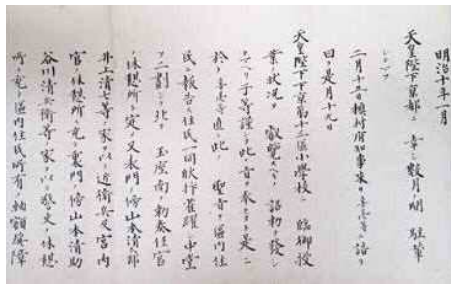 明治十年一月
天皇陛下京都ニ幸シ数月ノ間駐輦
シタマフ
二月十五日槙村府知事来リ喜兵衛等ニ語リ
曰ク是月十九日
天皇陛下下京第十二区小学校ニ臨御授
業状況ヲ叡覧スベキノ詔勅ヲ発シ
タマヘリ予等謹テ此ノ旨ヲ奉セヨト是ニ
於テ喜兵衛等直ニ此ノ聖旨ヲ区内住
民ニ報告シ住民一同欣抃雀躍ノ中堂
ヲ二割シ北ヲ玉座南ヲ勅奏任官
ノ休憩所ト定メ又表門ノ傍山本清郎
井上清七等ノ家ヲ以テ近衛兵及宮内
官ノ休憩所ニ充テ裏門ノ傍山本清助
谷川清兵衛等ノ家ヲ以テ警吏ノ休憩
所ニ充テ区内住民所有ノ軸額屏障